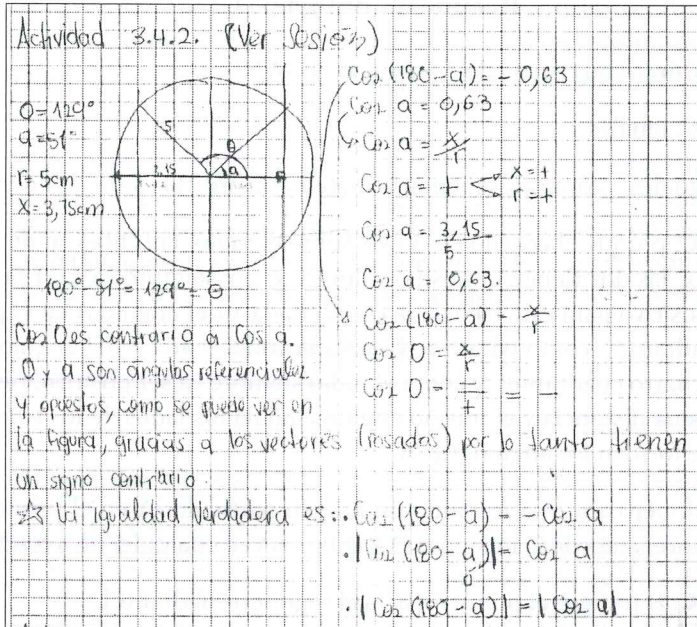 Actividad 3.4.2. (Ver Sesión)
θ=129°
a=51°
r=5cm
x=3,15cm
5
θ
3,15
a
180°-51°=129°=θ
Cos (180-a)=-0,63
Cos a=0,63
Cos a=x/r
Cos a=+
x=+
r=+
Cos a=3,15/5
Cos a=0,63.
Cos (180-a)=x/r
Cos θ=x/r
Cos θ=-/+ = -
Cos θ es contrario a Cos a.
θ y a son ángulos referenciales
y opuestos, como se puede ver en
la figura, gracias a los vectores (rosados) por lo tanto tienen
un signo contrario.
☆ La igualdad Verdadera es: • Cos (180-a)=-Cos a
• |Cos (180-a)|=Cos a
ó
• |Cos (180-a)|=|Cos a|